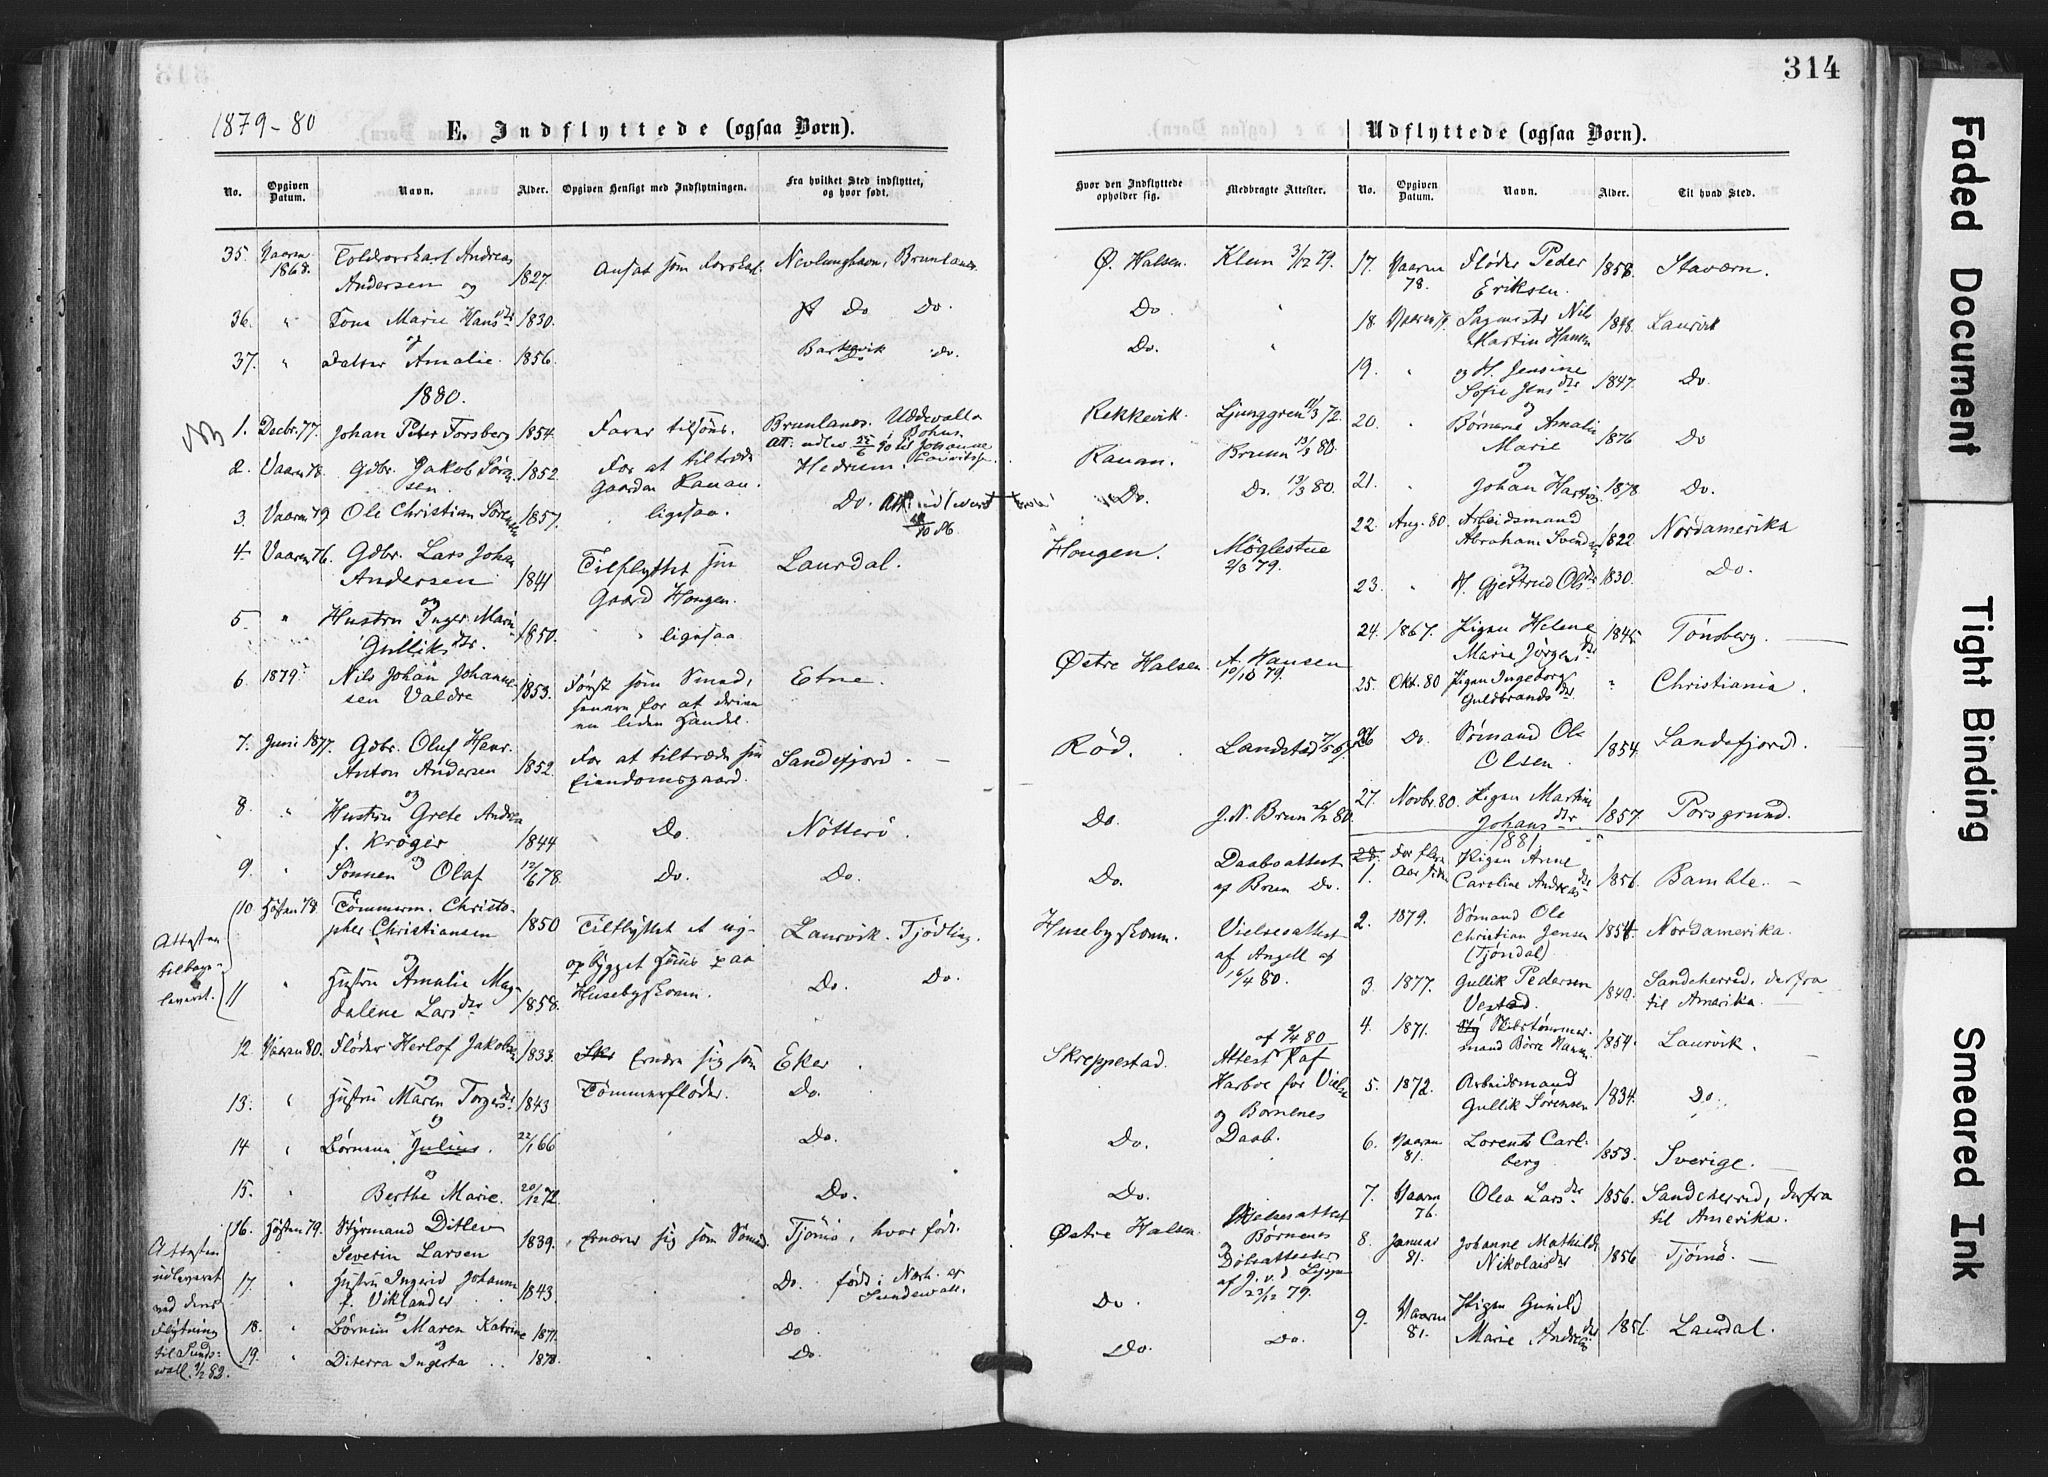 314
1879-80
E. Indflyttede (ogsaa Børn).
Udflyttede (ogsaa Børn).
No. Opgiven Datum. Navn. Alder. Opgiven Hensigt med Indflytningen. Fra hvilket Sted indflyttet, og hvor født.
Hvor den Indflyttede opholder sig. Medbragte Attester. No. Opgiven Datum. Navn. Alder. Til hvad Sted.
35. Vaaren 1868. Andreas Andersen og 1827. Ansat som Nevlunghavn, Brunlanes.
36. " Marie Hansdtr 1830. Do Do.
37. " Datter Amalie. 1856. Do.
1880.
1. Decbr. 77. Johan Peter Forsberg 1854. Farer tilsøns. Brunlanes. Uddevalla
2. Vaaren 78. Gdbr. Jakob Sørensen. 1852. For at tiltræde Gaarden Ranan. Hedrum.
3. Vaaren 79 Ole Christian 1857. ligesaa. Do.
4. Vaaren 76. Gdbr. Lars Johan Andersen 1841 Tilflyttet sin Gaard Hongen. Laurdal.
5. " og Hustru Inger Marie Gulliksdtr. 1850. " ligesaa
6. 1879 Nils Johan Johannesen Valdre 1853. Først som Smed, senere for at drive en liden Handel. Etne.
7. Juni 1877. Gdbr. Oluf Henr. Anton Andersen 1852. For at tiltræde sin Eiendomsgaard. Sandefjord.
8. " og Hustru Grete Andrea f. Krøger 1844 Do. Nötterö.
9. " og Sønnen Olaf 12/6 78. Do. Do.
10. Høsten 78. Tömmerm. Christopher Christiansen 1850 Tilflyttet et nyopbygget Huus paa Husebyskoven. Laurvik. Tjödling.
11 " og Hustru Amalie Magdalene Larsdtr 1858. Do. Do.
Attesten tilbageleveret.
12. Vaaren 80. Fløder Herlof Jakobsen 1833. ernære sig som Tømmerfløder. Eker.
13. " og Hustru Maren Torgersdtr 1843 Do.
14 " og Børnene Julius. 22/1 66 Do.
15. " og Berthe Marie. 20/12 72 Do.
16. Høsten 79. Styrmand Ditlev Severin Larsen 1839. Ernærer sig som Sømand. Tjömö, hvor født.
17. " Hustru Ingerid Johanne f. Viklander 1843. Do. født i
18. " og Børnene Maren Katrine 1871. Do.
19. " og Ingerta 1878. Do.
Attesten udleveret ved deres Flytning til Sundswall. 1/2 82.
Ø. Halsen. Klem 3/12 79.
Do. "
Do. "
Rekkevik. Ljunggren 11/3 72.
Ranan. Bruun 13/3 80.
Do. Do. 13/3 80.
Hongen. Møglestue 2/3 79.
Østre Halsen A. Hansen 12/10 79.
Rød. Landstad
Do. J. N. Brun 80.
Do. Daabsattest af Brun Do.
Husebyskoven. Vielsesattest af Angell af 16/4 80.
Skreppestad. Attest af Harboe for Vielse og Børnenes Daab.
Do.
Do.
Østre Halsen Vielsesattest og Børnenes Døbsattester af 23/12 79.
Do.
Do. Do.
17. Vaaren 78. Fløder Peder Eriksen. 1858. Staværn.
18. Nils Martin Hansen 1848. Laurvik
19. " og H. Jensine Sofie Jensdtr 1847. Do.
20. og Børnene Amalie Marie 1876 Do
21. " og Johan 1878. Do.
22. Aug. 80. Arbeidsmand Abraham Svendsen 1822. Nordamerika
23. " og H. Gjertrud Olsdtr 1830. Do.
24. 1867. Pigen Helene Marie Jörgensdtr 1845. Tönsberg.
25. Okt. 80 Pigen Ingeborg Guldbrandsdtr " Christiania.
26 Do. Sømand Ole Olsen. 1854. Sandefjord.
27. Novbr. 80. Pigen Martine Johansdtr. 1857. Porsgrund.
1881
1. For flere Aar siden Pigen Anne Caroline Andreasdtr 1856. Bamble.
2. 1879. Sømand Ole Christian Jensen (Tjøndal) 1854. Nordamerika.
3. 1877. Gullik Pedersen 1840. Sandeherred, derfra til Amerika.
4. 1871. Skibstømmermand Børre Hansen 1854. Laurvik.
5. 1872. Arbeidsmand Gullik Sørensen 1834. Do.
6. Vaaren 81. Lorents Carlberg. 1853. Sverige.
7. Vaaren 76. Olea Larsdtr 1856. Sandeherred, derfra til Amerika.
8. Januar 81. Johanne Mathilde Nikolaisdtr 1856. Tjömö.
9. Vaaren 81. Pigen Gunild Marie Andreasdtr 1856. Laurdal.
Faded Document
Tight Binding
Smeared Ink